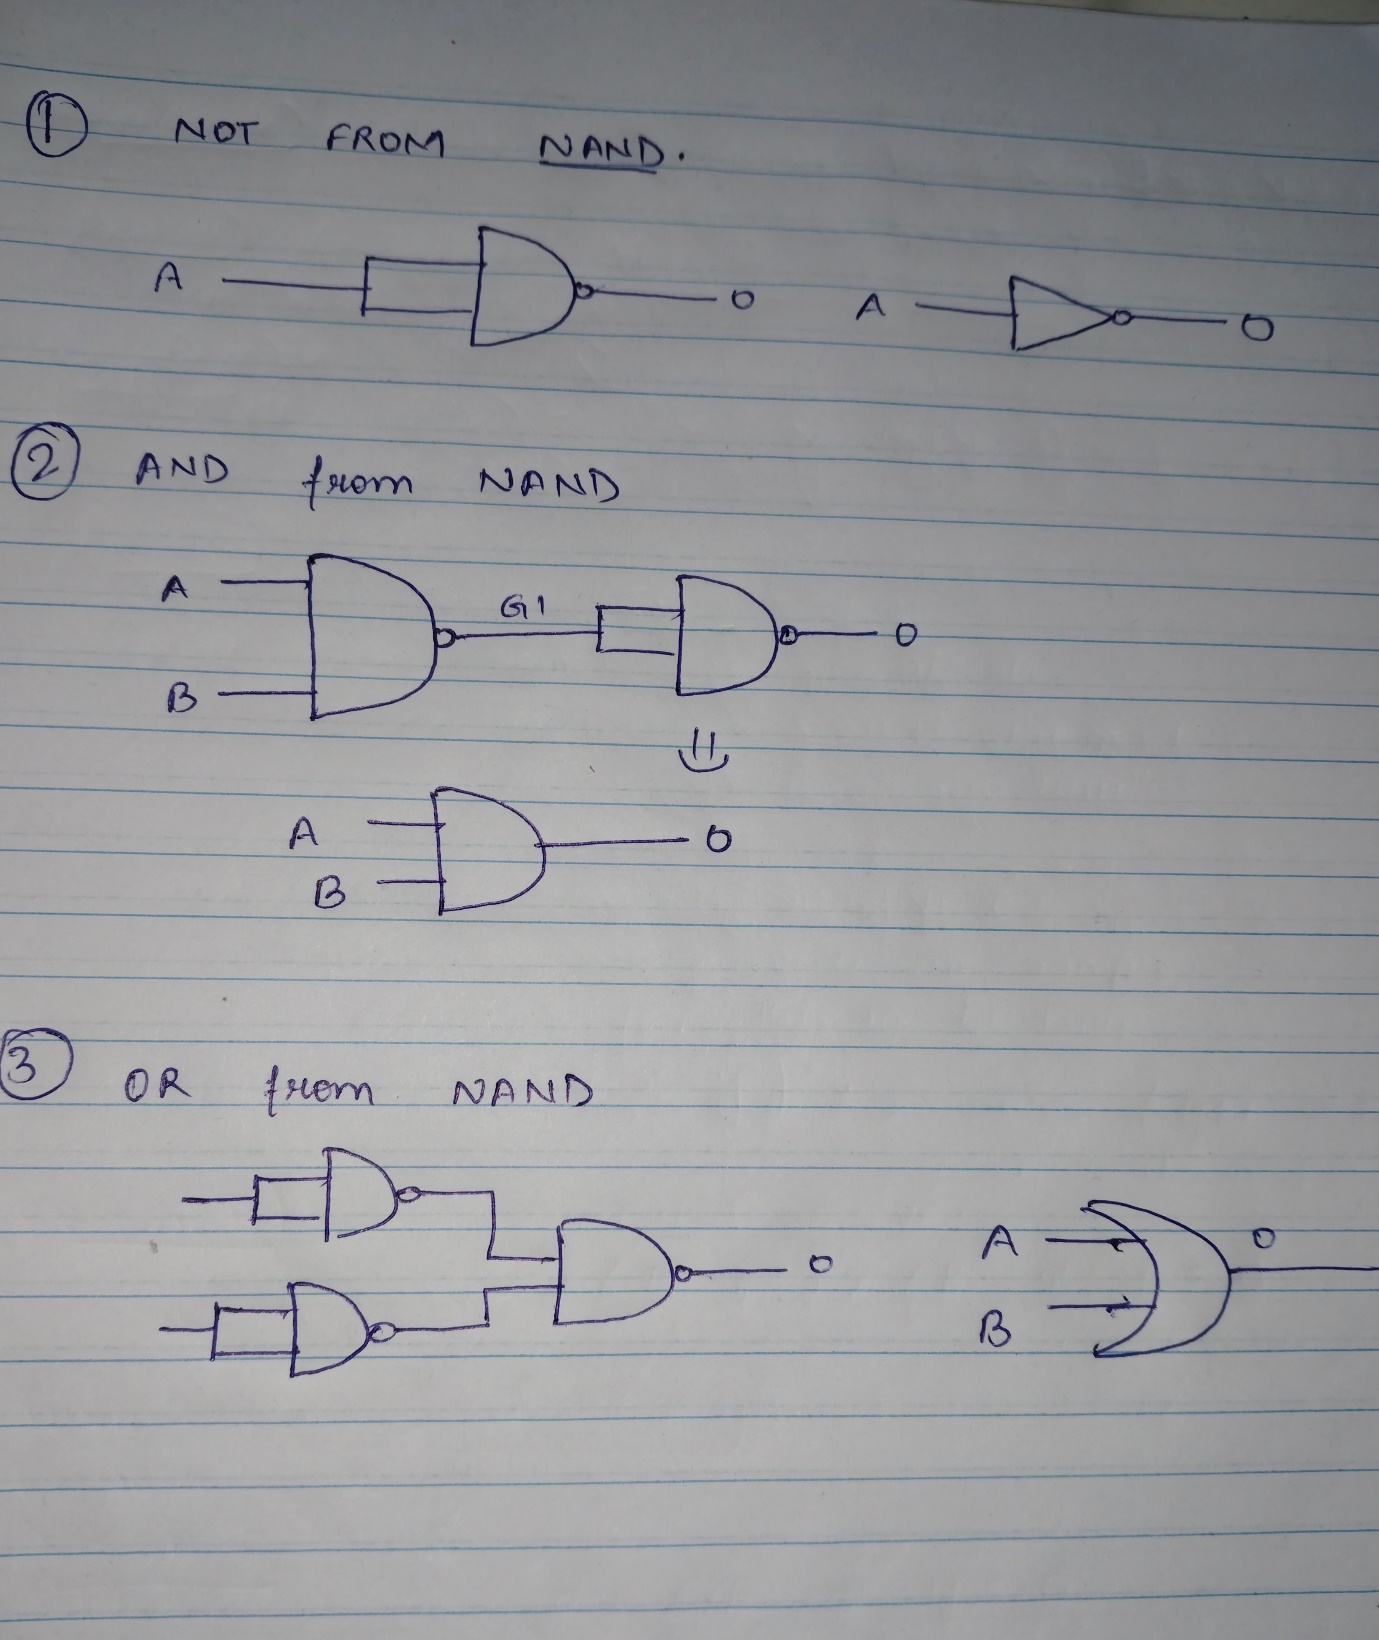 1 NOT FROM NAND.
A O A O
2 AND from NAND
A G1 O
B
A O
B
3 OR from NAND
O A O
B